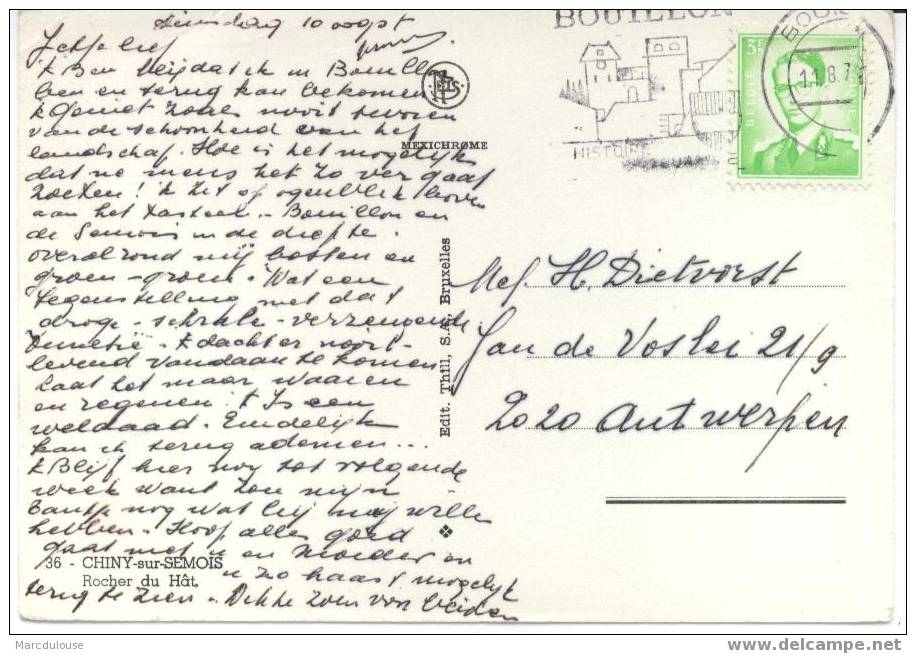 dinsdag 10 oogst
Jetje lief
'k Ben blij dat ik in Bouillon
ben en terug kan bekomen
'k geniet zoals nooit tevoren
van de schoonheid van het
landschap. Hoe is het mogelijk
dat ne mens het zo ver gaat
zoeken! 'k zit op ogenblik boven
aan het kasteel - Bouillon en
de Semois in de diepte.
overal rond mij bossen en
groen - groen. Wat een
tegenstelling met dat
droge - schrale - verzengende
Venetië - 'k dacht er nooit
levend vandaan te komen
Laat het maar waaien
en regenen 't Is een
weldaad. Eindelijk
kan ik terug ademen...
'k Blijf hier nog tot volgende
week want zou mijn
tantje nog wat bij mij willen
hebben - Hoop alles goed
gaat met u en Moeder en
u zo haast mogelijk
terug te zien - Dikke zoen van beiden
36 - CHINY-sur-SEMOIS
Rocher du Hât.
MEXICHROME
Edit. Thill, S.A. Bruxelles
BOUILLON
HISTOIRE
3F
BELGIË
11.8.7
Mej. H. Dietvorst
Jan de Voslei 21/9
2020 Antwerpen
Marcdulouse
www.delcampe.net